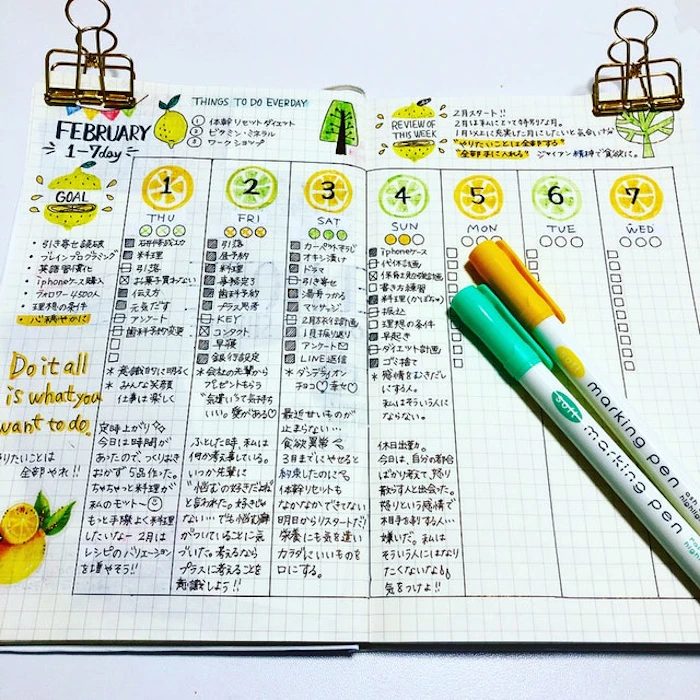 FEBRUARY
1-7day
THINGS TO DO EVERDAY
① 体幹リセットダイエット
② ビタミン・ミネラル
③ ワークショップ
REVIEW OF
THIS WEEK
2月スタート!!
2月は私にとって特別な月。
1月以上に充実した月にしたいと気合いが
やりたいことは全部する
全部手に入れる ジャイアン精神で貪欲に。
GOAL
・引き寄せ読破
・ブレインプログラミング
・英語習慣化
・iphoneケース購入
・フォロワー1,500人
・理想の条件
・心穏やかに
Do it all
is what you
want to do.
りたいことは
全部やれ!!
1
THU
料理
引落
お菓子買わない
伝え方
元気だす
アンケート
歯科予約変更
* 意識的に明るく
* みんな笑顔
仕事は楽しく
定時上がり
今日は時間が
あったので、つくりおき
おかず5品作った。
ちゃちゃっと料理が
私のモットー
もっと手際よく料理
したいなー 2月は
レシピのバリエーション
を増やそう!!
2
FRI
引落
昼予約
料理
事務処了
歯科予約
プラス思考
KEY
コンタクト
早寝
銀行設定
* 会社の先輩から
プレゼントもらう
気遣いって素持ち
いい。愛がある♡
ふとした時、私は
何か考え事している。
いつか先輩に
"悩むの好きだよね"
と言われた。好きじゃ
ない…でも悩む癖
がついていることに気
づいた。考えるなら
プラスに考えることを
意識しよう!!
3
SAT
カーペットそうじ
オキシ漬け
ドラマ
引き寄せ
湯舟つかる
マッサージ
2月振り計画
1月振り返り
アンケート
LINE返信
* ダンデライオン
チョコ♡幸せ♡
最近甘いものが
止まらない…
食欲異常
3月までにやせると
約束したのに
体幹リセットも
なかなかできてない
明日からリスタートだ!
栄養にも気を遣い
カラダにいいものを
口にする。
4
SUN
iphoneケース
代休計画
書き方練習
料理(かぼちゃ)
振込
理想の条件
早起き
ダイエット計画
ゴミ捨て
* 感情をむきだし
にする人。
私はそういう人に
ならない。
休日出勤。
今日は、自分の都合
ばかり考えて、怒り
散らす人と出会った。
怒りという感情で
相手を制する人…
嫌いだ。私は
そういう人にはなり
たくないなぁ
気をつけよ!!
5
MON
6
TUE
7
WED
soft
marking pen
marking pen